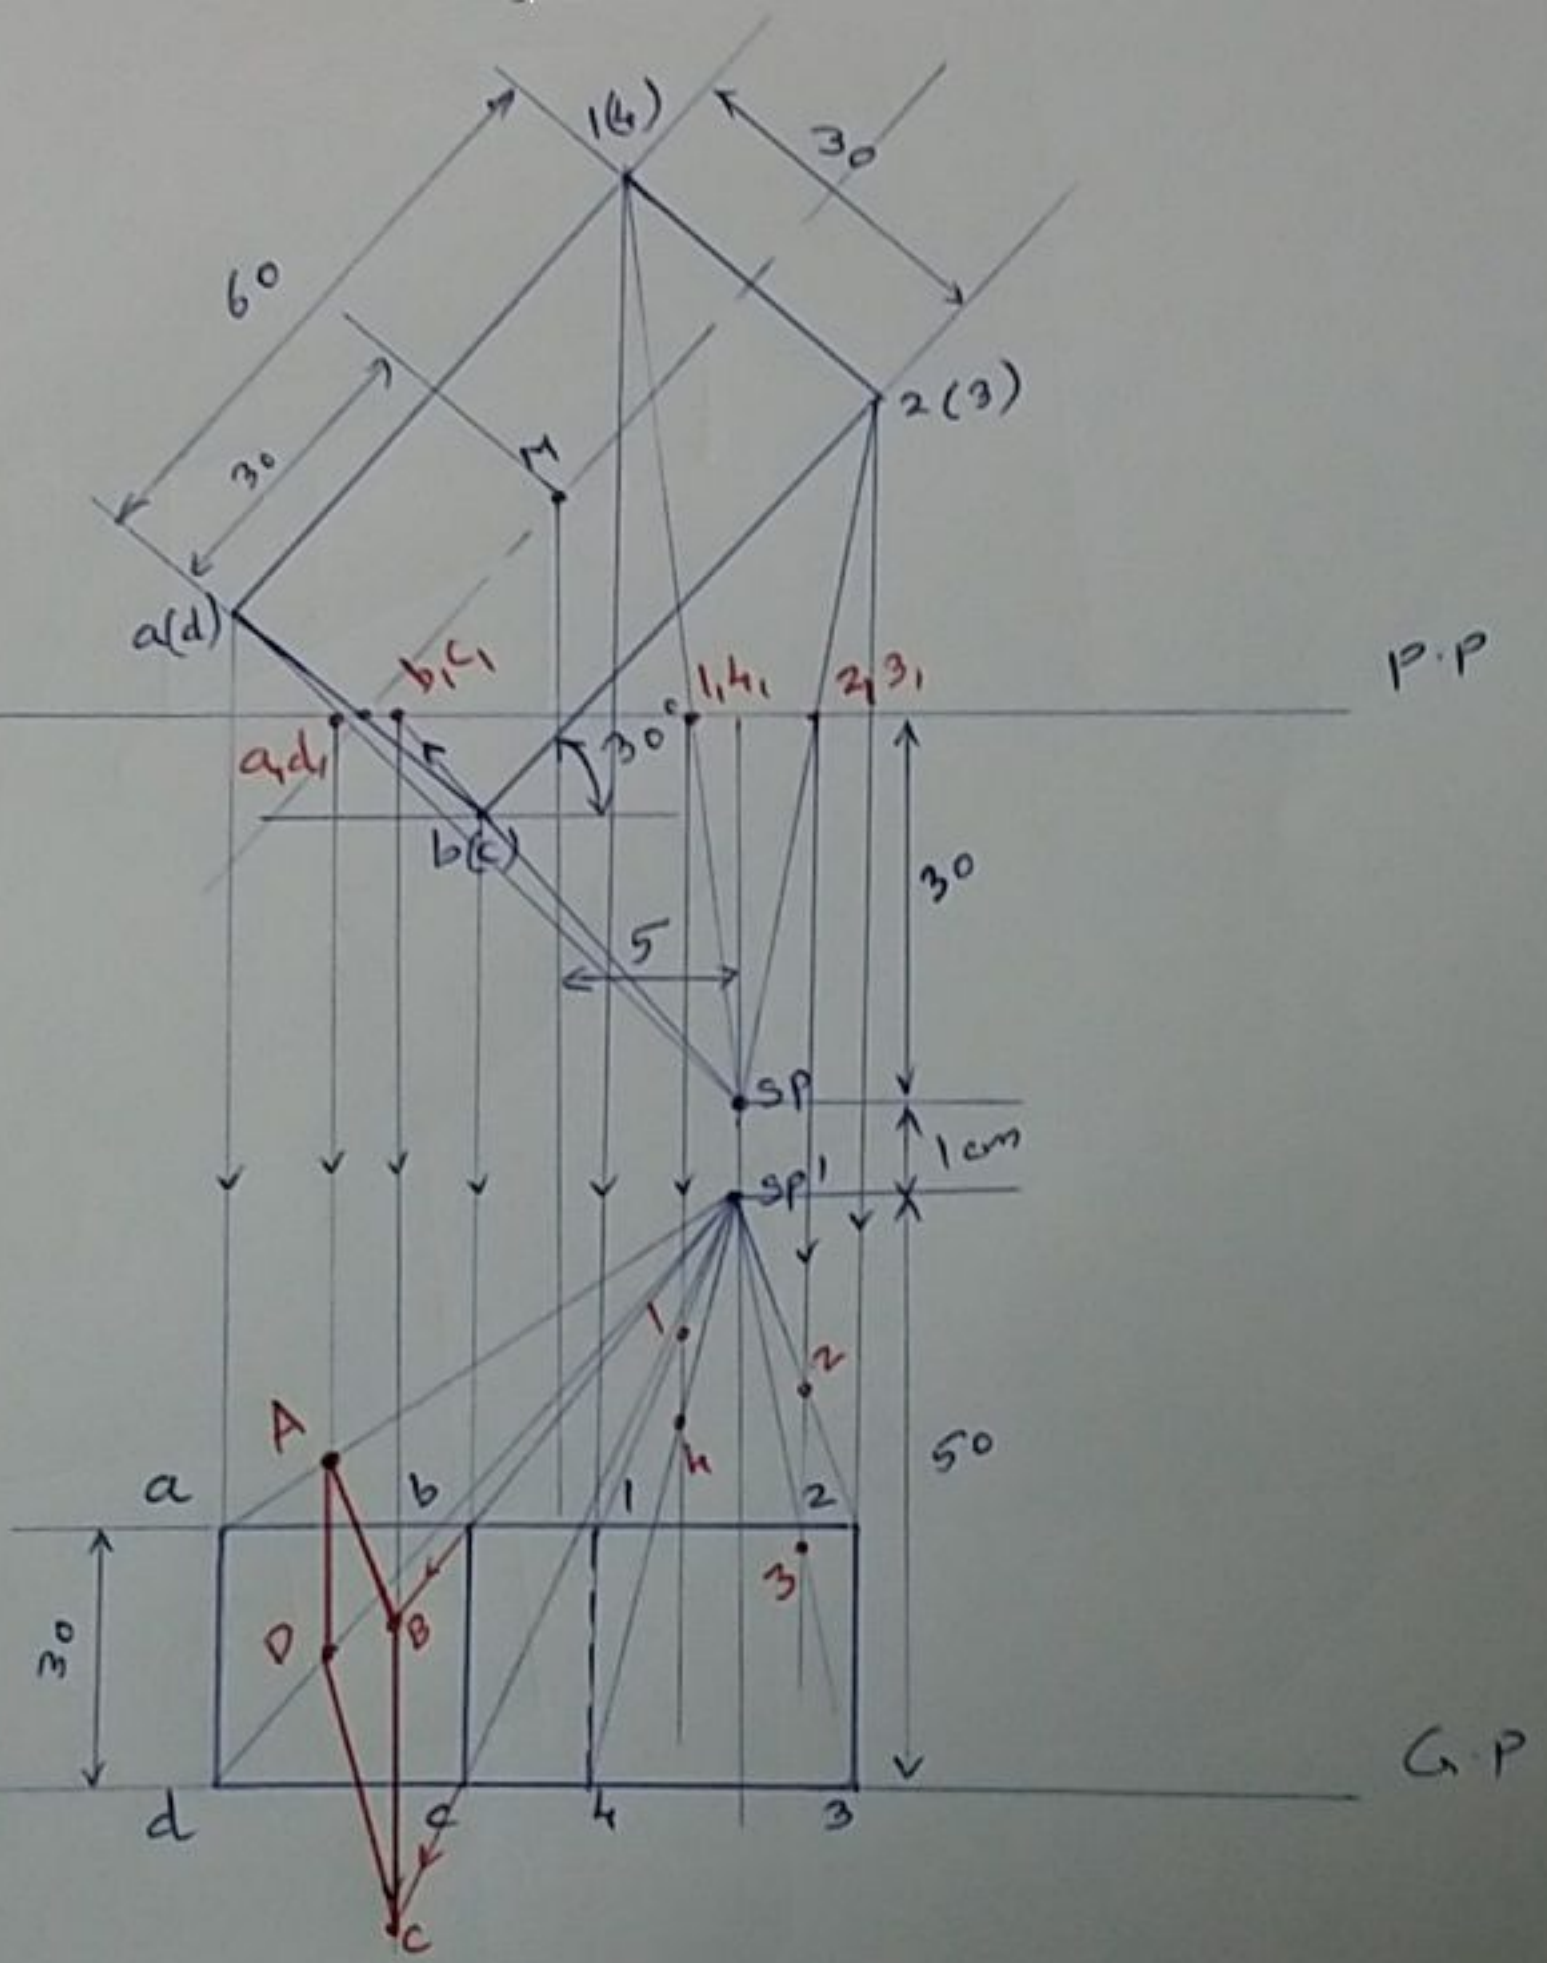 1(4)
30
60
2(3)
M
30
a(d)
b₁c₁
1₁4₁
2₁3₁
P.P
a₁d₁
30°
b(c)
30
5
SP
1cm
SP'
1
2
A
4
50
a
b
1
2
3
30
D
B
G.P
d
c
4
3
C